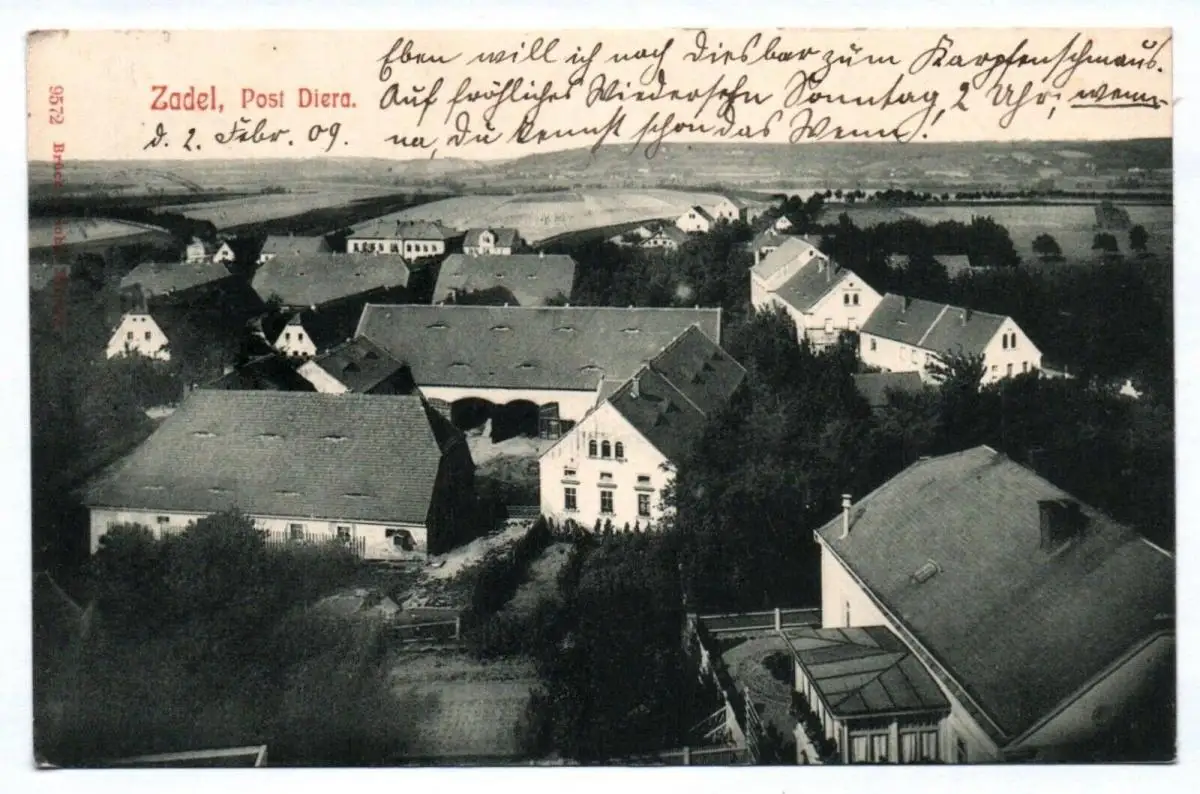 Eben will ich nach Diesbar zum Karpfenschmaus.
Auf fröhliches Wiedersehn Sonntag, 2 Uhr, wenn –
na, Du kennst schon das Wenn.
Zadel, Post Diera.
d. 2. Febr. 09.
9572